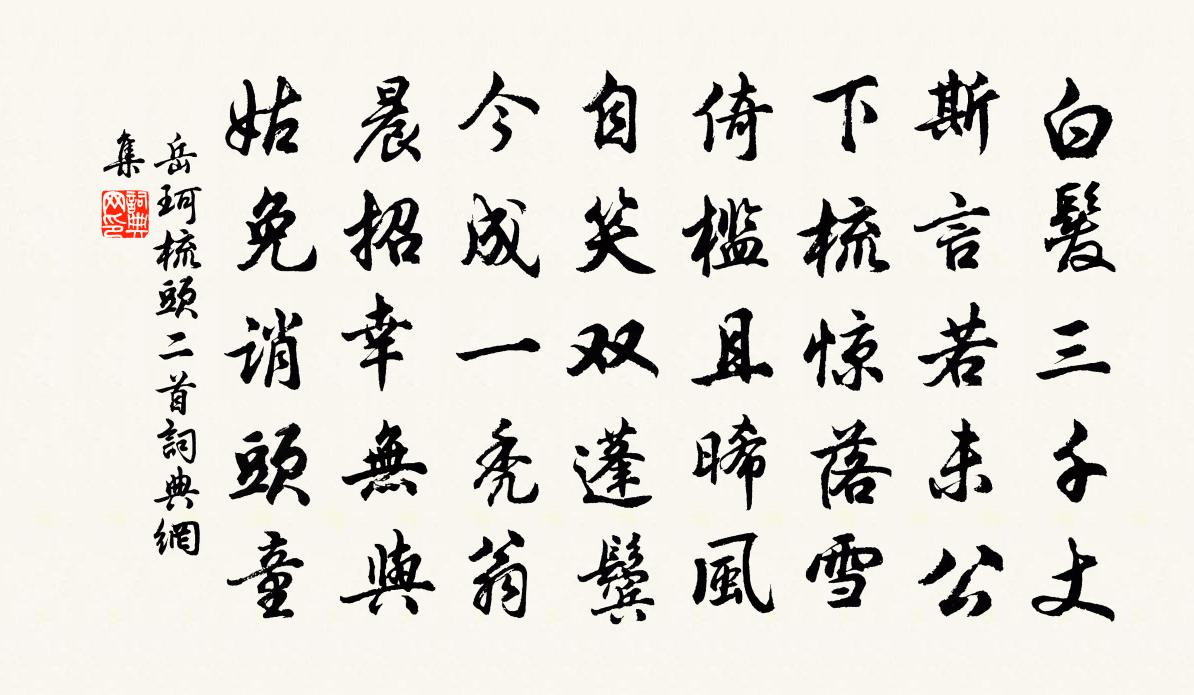 白髮三千丈
斯言若未公
下梳惊落雪
倚檻且晞風
自笑双蓬鬢
今成一秃翁
晨招幸無與
姑免誚頭童
岳珂梳頭二首詞典網
集
詞典
网印